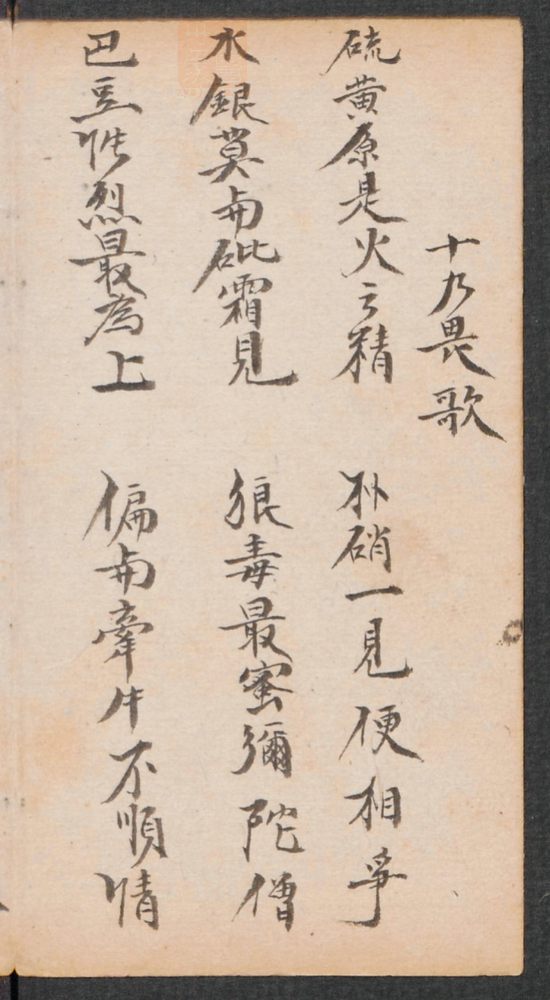 十乃畏歌
硫黄原是火之精 朴硝一見便相爭
水銀莫与砒霜見 狼毒最蜜彌陀僧
巴豆性烈最為上 偏与牽牛不順情